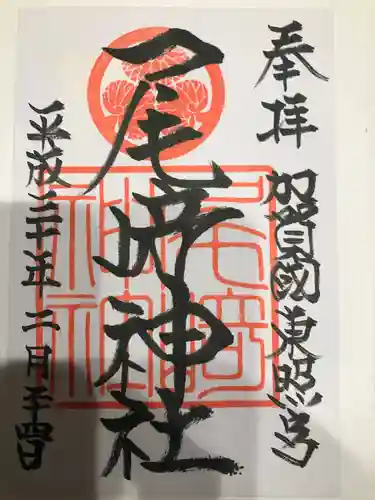 奉拝
加賀國東照宮
尾崎神社
平成三十年二月二十四日
尾崎神社